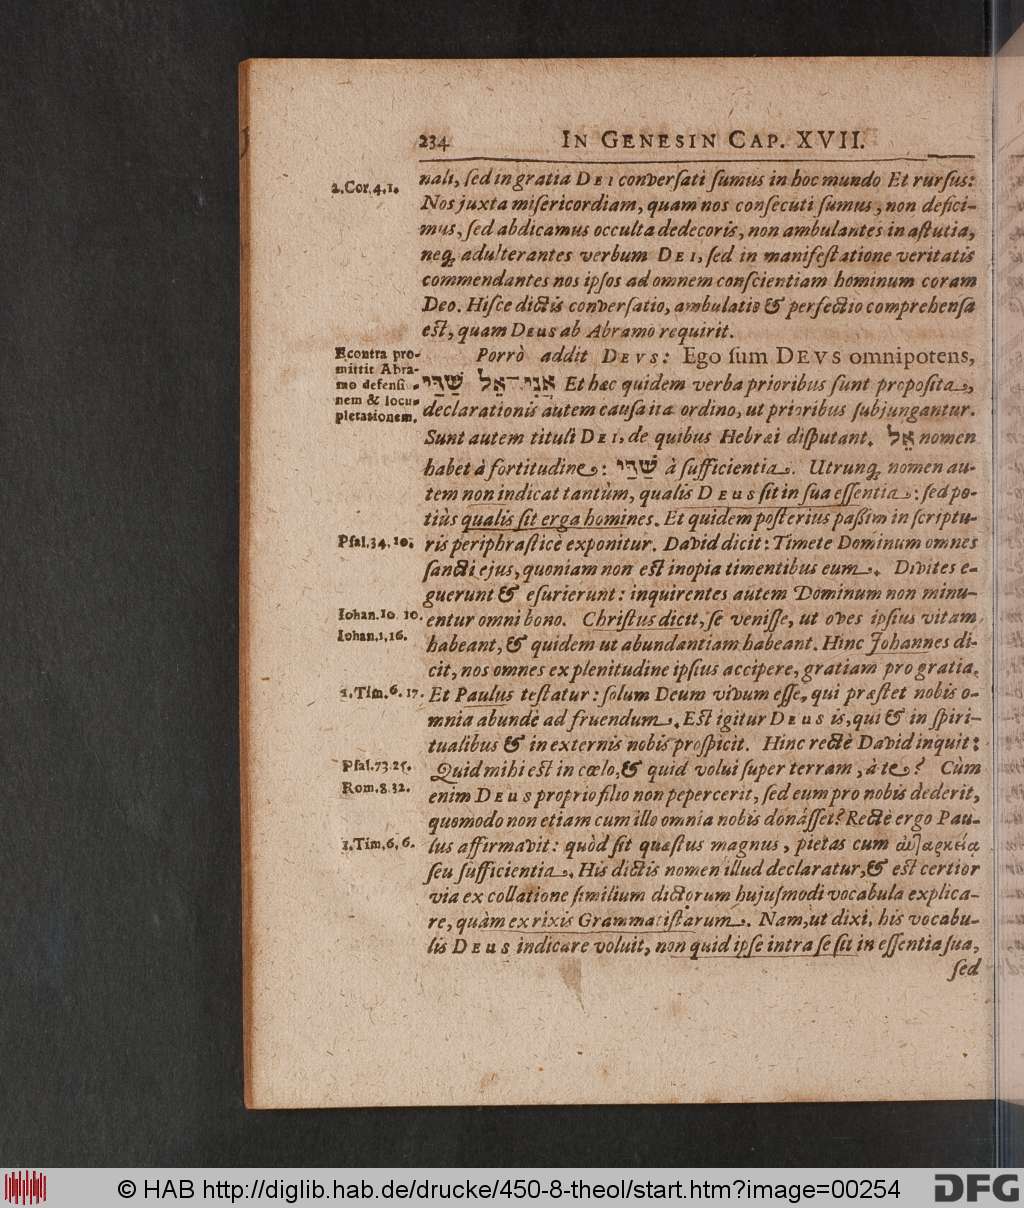 234 IN GENESIN CAP. XVII.
2. Cor. 4, 1.
nali, ſed in gratia DEI converſati ſumus in hoc mundo Et rurſus:
Nos juxta miſericordiam, quam nos conſecuti ſumus, non defici-
mus, ſed abdicamus occulta dedecoris, non ambulantes in aſtutia,
neq; adulterantes verbum DEI, ſed in manifeſtatione veritatis
commendantes nos ipſos ad omnem conſcientiam hominum coram
Deo. Hiſce dictis converſatio, ambulatio & perfectio comprehenſa
eſt, quam DEUS ab Abramo requirit.
Econtra pro-
mittit Abra-
mo defenſi-
nem & locu-
pletationem.
Porrò addit DEVS: Ego ſum DEVS omnipotens,
אֲנִי־אֵל שַׁדַּי Et hæc quidem verba prioribus ſunt propoſita,
declarationis autem cauſa ita ordino, ut prioribus ſubjungantur.
Sunt autem tituli DEI, de quibus Hebræi diſputant. אֵל nomen
habet à fortitudine: שַׁדַּי à ſufficientia. Utrunq; nomen au-
tem non indicat tantùm, qualis DEUS ſit in ſua eſſentia: ſed po-
tiùs qualis ſit erga homines. Et quidem poſterius paſſim in ſcriptu-
Pſal. 34. 10.
ris periphraſticè exponitur. David dicit: Timete Dominum omnes
ſancti ejus, quoniam non eſt inopia timentibus eum. Divites e-
guerunt & eſurierunt: inquirentes autem Dominum non minu-
Iohan. 10. 10.
entur omni bono. Chriſtus dicit, ſe veniſſe, ut oves ipſius vitam
Iohan. 1, 16.
habeant, & quidem ut abundantiam habeant. Hinc Johannes di-
cit, nos omnes ex plenitudine ipſius accipere, gratiam pro gratia.
1. Tim. 6. 17.
Et Paulus teſtatur: ſolum Deum vivum eſſe, qui præſtet nobis o-
mnia abundè ad fruendum. Eſt igitur DEUS is, qui & in ſpiri-
tualibus & in externis nobis proſpicit. Hinc rectè David inquit:
Pſal. 73. 25.
Quid mihi eſt in cœlo, & quid volui ſuper terram, à te? Cùm
Rom. 8. 32.
enim DEUS proprio filio non pepercerit, ſed eum pro nobis dederit,
quomodo non etiam cum illo omnia nobis donaſſet? Rectè ergo Pau-
1. Tim. 6, 6.
lus affirmavit: quòd ſit quæſtus magnus, pietas cum αὐταρκείᾳ
ſeu ſufficientia. His dictis nomen illud declaratur, & eſt certior
via ex collatione ſimilium dictorum hujuſmodi vocabula explica-
re, quàm ex rixis Grammatiſtarum. Nam, ut dixi, his vocabu-
lis DEUS indicare voluit, non quid ipſe intra ſe ſit in eſſentia ſua,
ſed
© HAB http://diglib.hab.de/drucke/450-8-theol/start.htm?image=00254
DFG